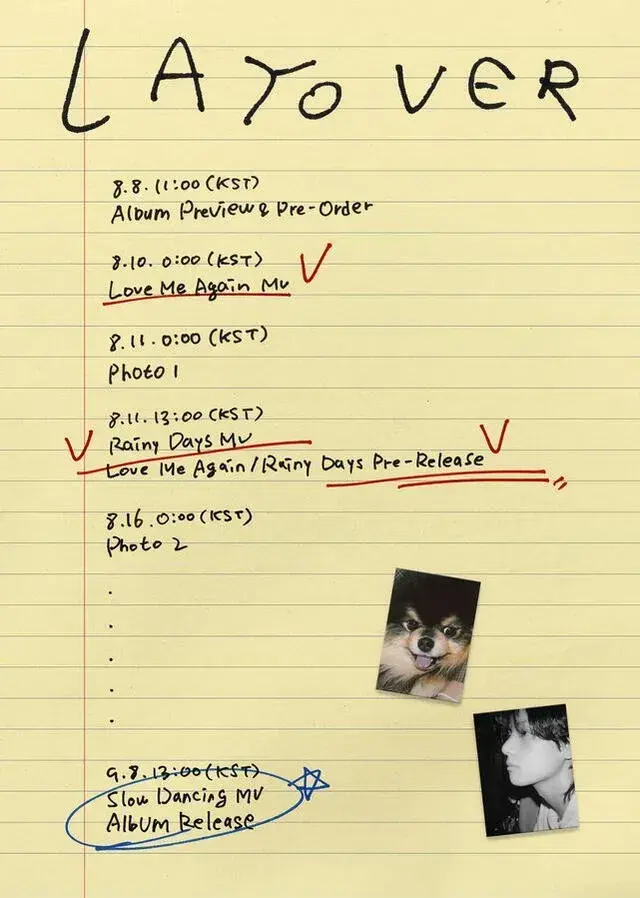 LAYOVER
8.8.11:00(KST)
Album Preview & Pre-Order
8.10.0:00(KST)
Love Me Again MV
8.11.0:00(KST)
Photo 1
8.11.13:00(KST)
Rainy Days MV
Love Me Again/Rainy Days Pre-Release
8.16.0:00(KST)
Photo 2
.
.
.
.
.
9.8.13:00(KST)
Slow Dancing MV
Album Release